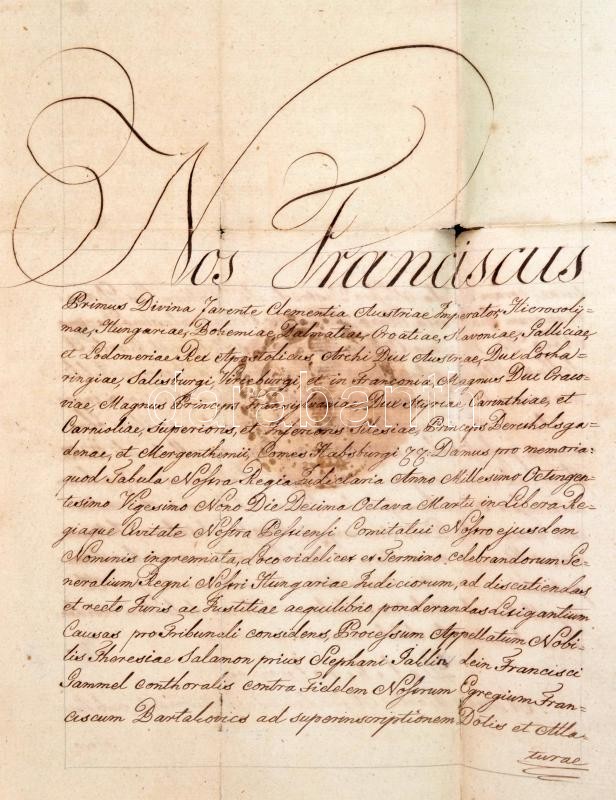 Nos Franciscus
Primus Divina favente Clementia Austriae Imperator, Hierosoly=
mae, Hungariae, Bohemiae, Dalmatiae, Croatiae, Slavoniae, Galliciae,
et Lodomeriae Rex Apostolicus Archi Dux Austriae, Dux Lotha=
ringiae, Salisburgi, Virceburgi et in Franconia, Magnus Dux Craco=
viae, Magnus Princeps Transylvaniae, Dux Styriae, Carinthiae, et
Carnioliae, Superioris, et Inferioris Silesiae, Princeps Berchtolsga=
denae, et Mergenthemii, Comes Habsburgi Damus pro memoria:
quod Tabula Nostra Regia Judiciaria Anno Millesimo Octingen=
tesimo Vigesimo Nono Die Decima Octava Martii in Libera Re=
giaque Civitate Nostra Pestiensi Comitatui Nostro ejusdem
Nominis ingremiata, Loco videlicet et Termino celebrandorum Ge=
neralium Regni Nostri Hungariae Judiciorum, ad discutiendas
et recto Juris ac Justitiae aequilibrio ponderandas Litigantium
Causas pro Tribunali considens, Processum Appellatum Nobi=
lis Theresiae Salamon prius Stephani Gallin dein Francisci
Gammel conthoralis contra Fidelem Nostrum Egregium Fran=
ciscum Bartakovics ad superinscriptionem Dotis et Alla=
turae
darabanth